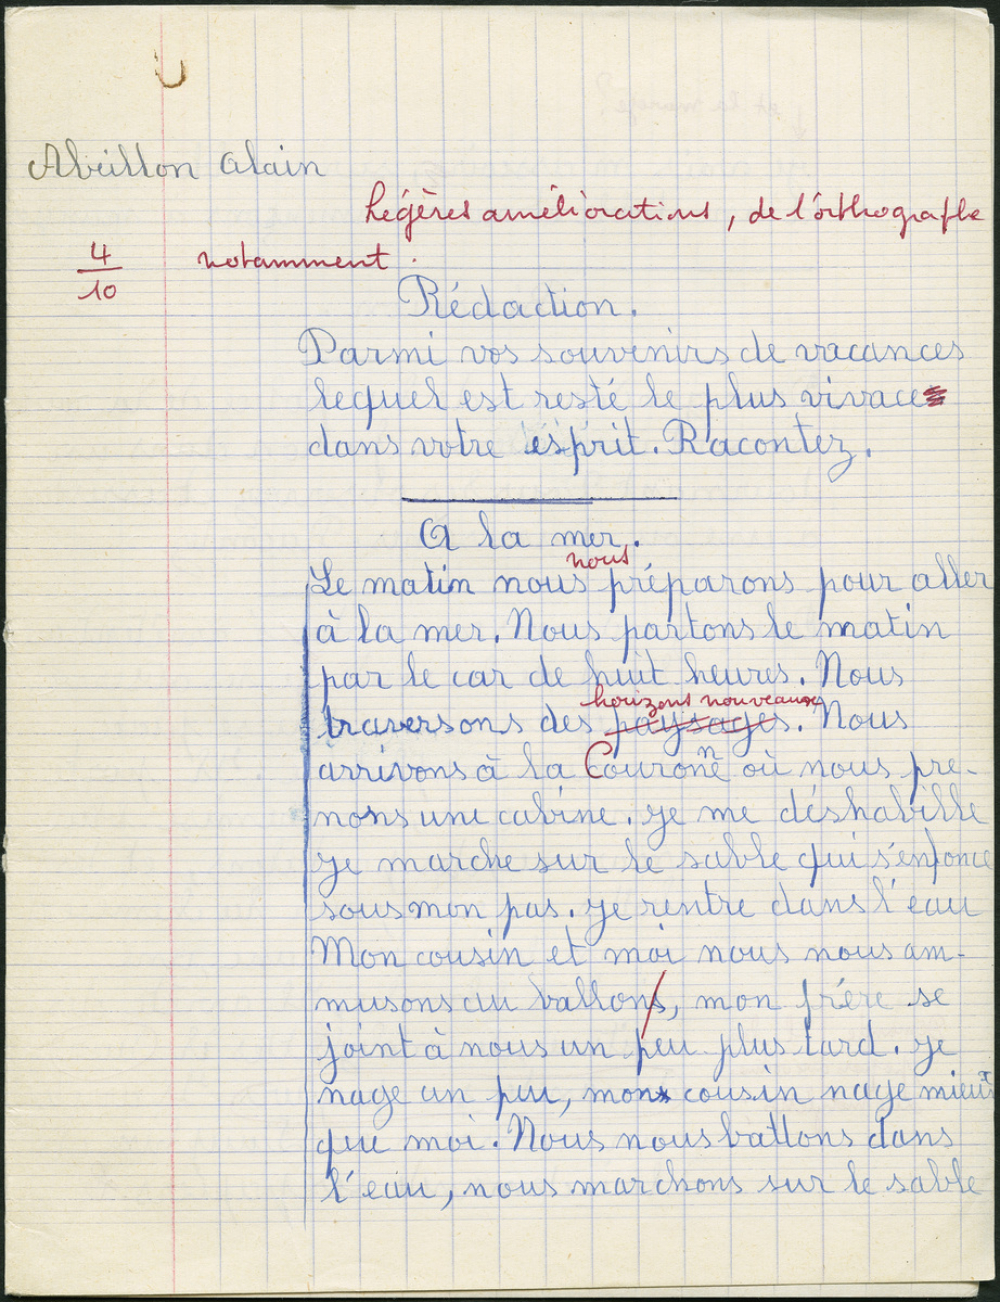 Abeillon Alain
Légères améliorations, de l'orthographe
4/10 notamment.
Rédaction.
Parmi vos souvenirs de vacances
lequel est resté le plus vivace
dans votre esprit. Racontez.
A la mer.
nous
Le matin nous préparons pour aller
à la mer. Nous partons le matin
par le car de huit heures. Nous
horizons nouveaux
traversons des paysages. Nous
arrivons à la Couronne où nous pre-
nons une cabine. Je me déshabille
Je marche sur le sable qui s'enfonce
sous mon pas. Je rentre dans l'eau
Mon cousin et moi nous nous am-
musons au ballons, mon frére se
joint à nous un peu plus tard. Je
nage un peu, mon cousin nage mieux
que moi. Nous nous battons dans
l'eau, nous marchons sur le sable